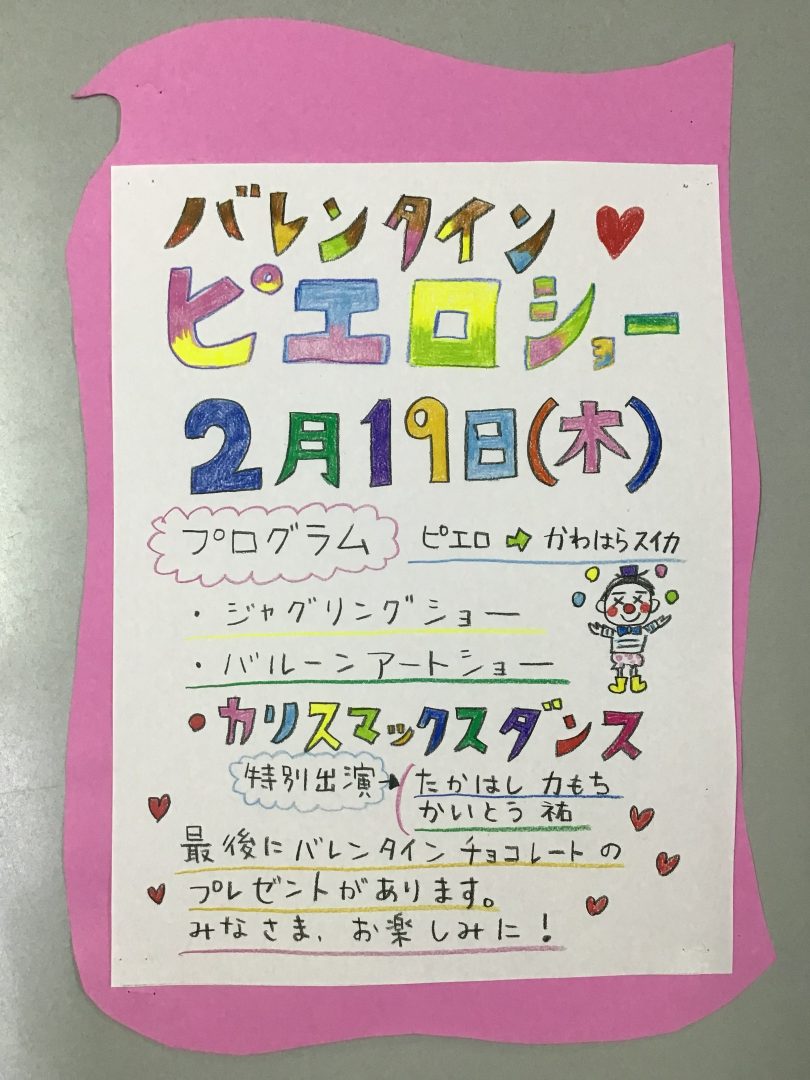 バレンタイン
ピエロショー
2月19日(木)
プログラム ピエロ➡かわはらスイカ
・ジャグリングショー
・バルーンアートショー
・カリスマックスダンス
特別出演→(たかはし 力もち
かいとう 祐
最後にバレンタインチョコレートの
プレゼントがあります。
みなさま、お楽しみに!